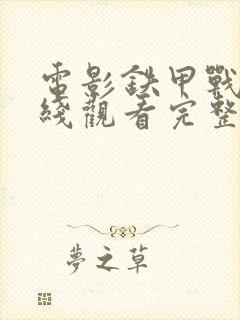 電影鉄甲戰
綫觀看完整
夢之草